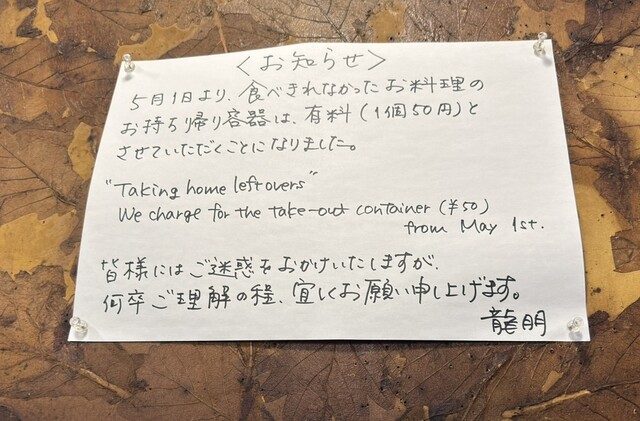 〈お知らせ〉
5月1日より、食べきれなかったお料理の
お持ち帰り容器は、有料(1個50円)と
させていただくことになりました。
"Taking home leftovers"
We charge for the take-out container (¥50)
from May 1st.
皆様にはご迷惑をおかけいたしますが、
何卒ご理解の程、宜しくお願い申し上げます。
龍明